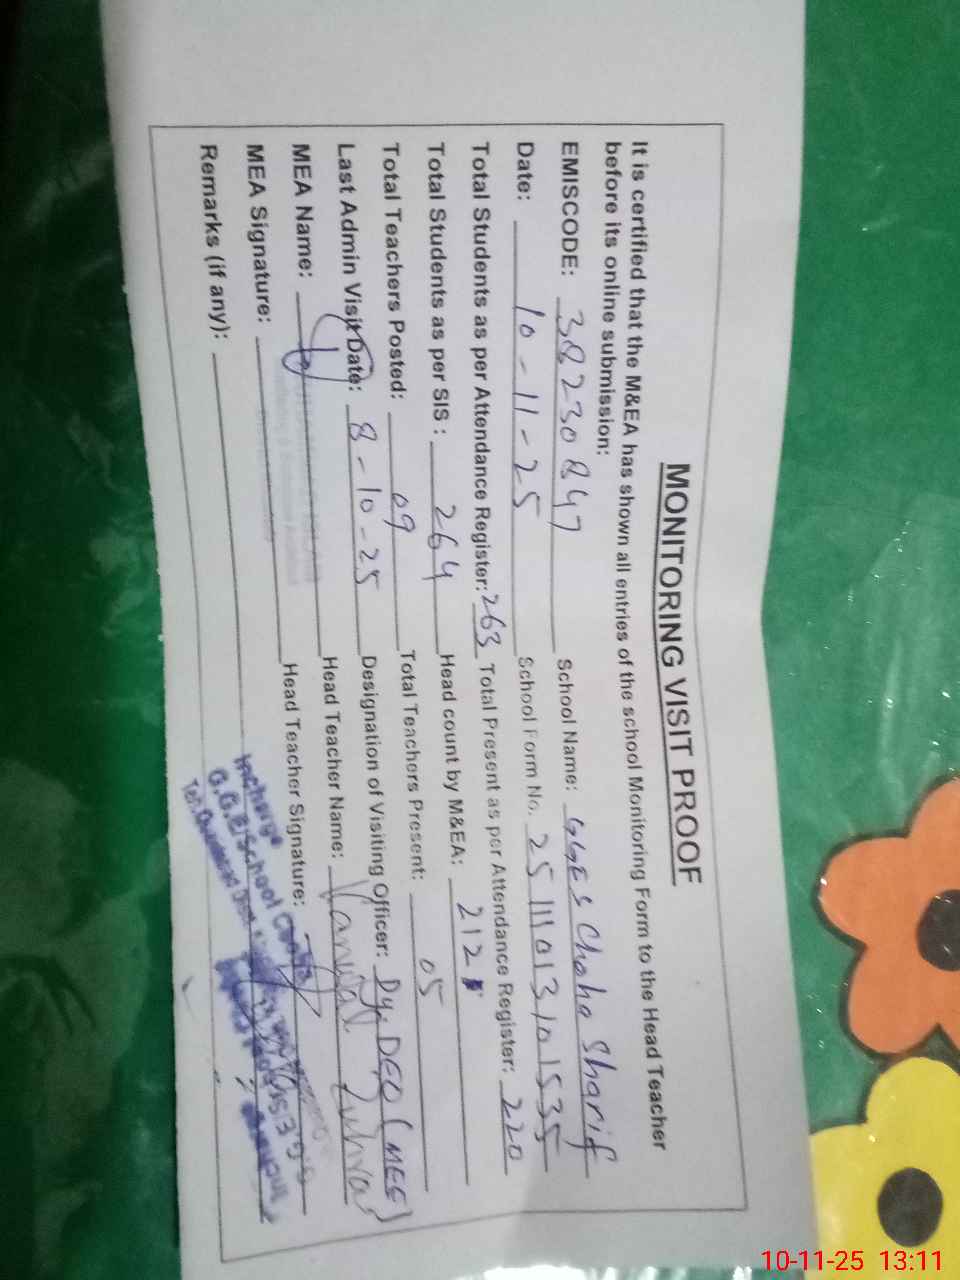 MONITORING VISIT PROOF
It is certified that the M&EA has shown all entries of the school Monitoring Form to the Head Teacher
before its online submission:
EMISCODE: 38230847 School Name: GGES Choha Sharif
Date: 10-11-25 School Form No. 25111013101535
Total Students as per Attendance Register: 263 Total Present as per Attendance Register: 220
Total Students as per SIS : 264 Head count by M&EA: 212
Total Teachers Posted: 09 Total Teachers Present: 05
Last Admin Visit Date: 8-10-25 Designation of Visiting Officer: Dy. DEO (MEE)
MEA Name: Head Teacher Name: Zuhra
MEA Signature: Head Teacher Signature:
Remarks (if any):
Incharge
G.G.E/School
10-11-25 13:11